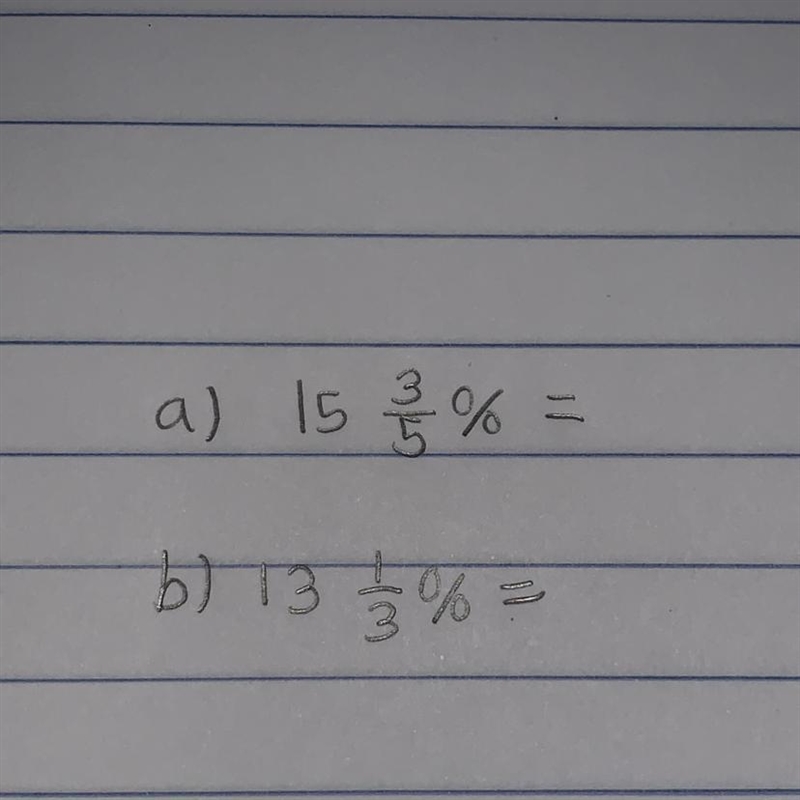 a) 15 3/5 % =
b) 13 1/3 % =